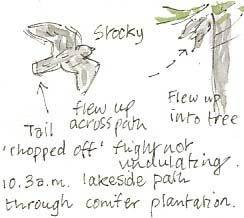 Stocky
flew up
across path
Flew up
into tree
Tail
'chopped off' flight not
undulating.
10.3 a.m. lakeside path
through conifer plantation.